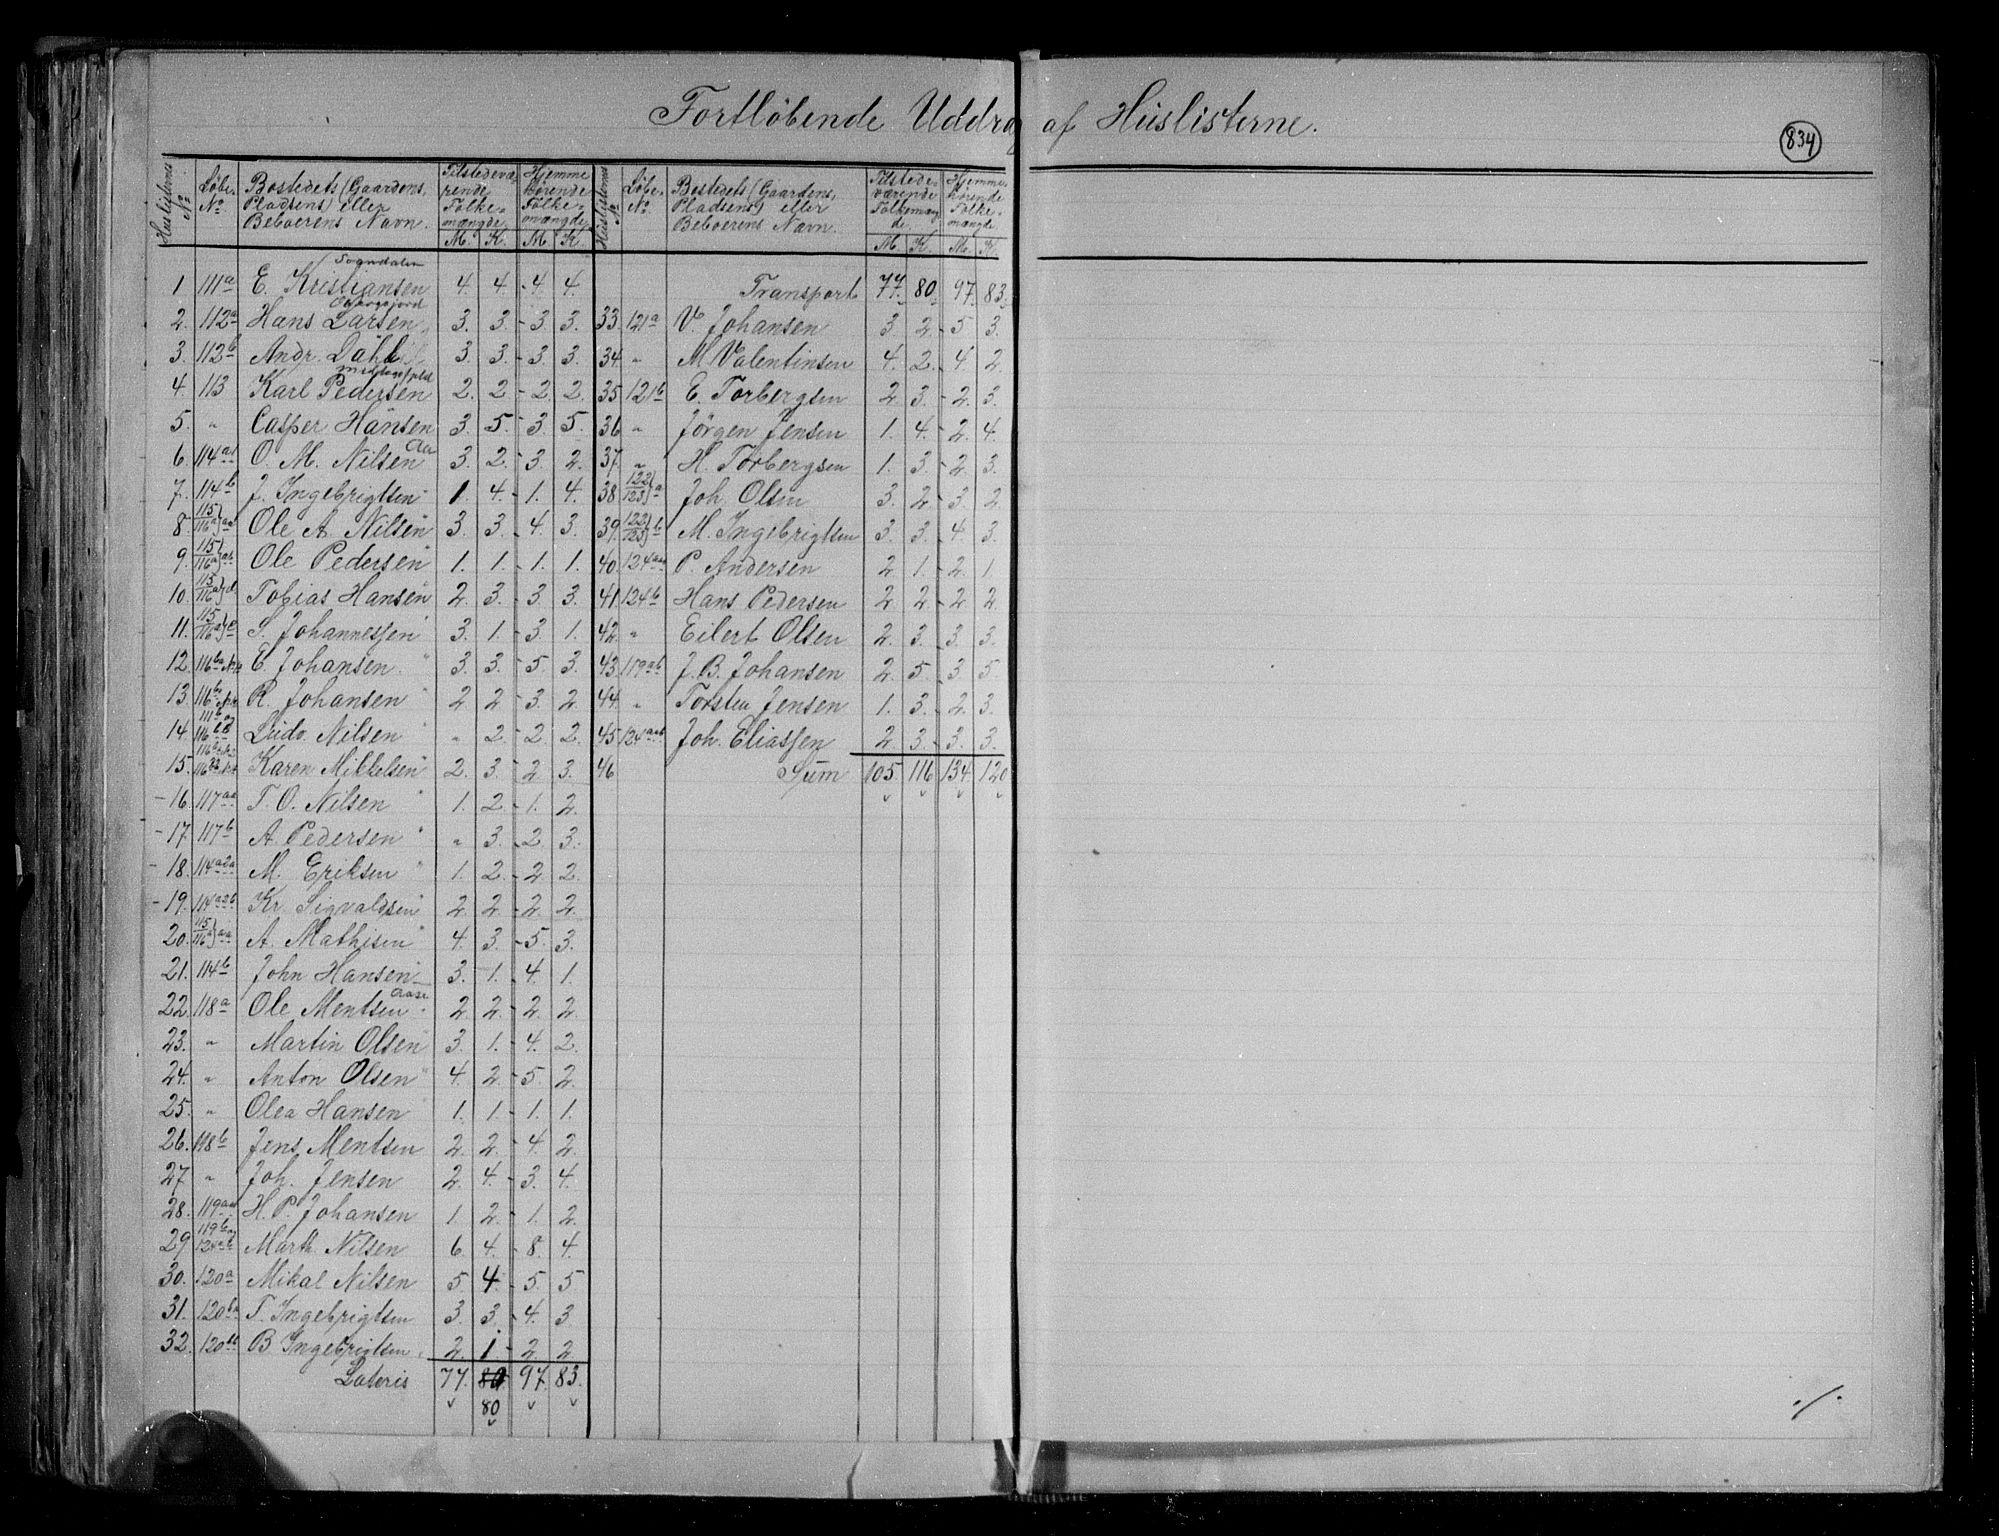 Fortløbende Uddrag af Huslisterne.
834
Huslisternes No. Løbe-No. Bostedets (Gaardens, Pladsens) eller Beboerens Navn. Tilstedeværende Folkemængde. M. K. Hjemmehørende Folkemængde. M. K.
Sogndalen
1 111a E. Kristiansen 4. 4. - 4. 4.
2. 112a Hans Larsen 3. 3. - 3. 3.
3. 112b Andr. Dahl 3. 3. - 3. 3.
4. 113 Karl Pedersen 2. 2 - 2. 2.
5. " Casper Hansen 3. 5. - 3. 5.
6. O. M. Nilsen Aa 3. 2. - 3. 2.
7. 114b J. Ingebrigtsen " 1. 4. - 1. 4.
8. 115/116a}aa Ole A. Nilsen " 3. 3. - 4. 3.
9. 115/116a}ab Ole Pedersen " 1. 1. - 1. 1.
10. 115/116a}d Tobias Hansen " 2. 3. - 3. 3.
11. 115/116a}e S. Johannessen " 3. 1. - 3. 1.
12. E. Johansen. " 3. 3. - 5. 3.
13. R. Johansen " 2 2 - 3. 2.
14 Ludv. Nilsen " " 2. - 2. 2.
15. Karen Mikkelsen " 2. 3. - 2. 3.
- 16. 117aa T. O. Nilsen " 1. 2. - 1. 2.
- 17. 117b A. Pedersen " " 3. - 2. 3.
- 18. 114a2a M. Eriksen " 1. 2. - 2. 2.
- 19. 114a2b Kr. Sigvaldsen " 2. 2. - 2. 2.
20. 115/116a}aa A. Mathisen " 4. 3. - 5. 3.
21. 114b John Hansen 3. 1. - 4. 1.
22. 118a Ole Mentsen Aase 2. 2. - 2. 2.
23. " Martin Olsen " 3. 1. - 4. 2.
24. " Anton Olsen " 4. 2. - 5. 2.
25. " Olea Hansen " 1. 1. - 1. 1.
26. 118b Jens Mentsen 2. 2. - 4. 2.
27 " Joh. Jensen 2. 4. - 3. 4.
28. 119aa H. P. Johansen 1. 2. - 1. 2.
29 Marth. Nilsen 6. 4. - 8. 4.
30. 120a Mikal Nilsen 5. 4. - 5. 5.
31. 120ba T. Ingebrigtsen 3. 3. - 4. 3.
32. 120bb B. Ingebrigtsen. 2. 1. - 2. 2.
Lateris 77. 80 97. 83.
80
Huslisternes No. Løbe-No. Bostedets (Gaardens, Pladsens) eller Beboerens Navn. Tilstedeværende Folkemængde. M. K. Hjemmehørende Folkemængde. M. K.
Transport 77. 80. 97. 83.
33. 121a V. Johansen 3. 2. - 5. 3.
34. " M. Valentinsen 4. 2. - 4. 2
35. 121b E. Torbergsen 2. 3. - 2. 3.
36. " Jörgen Jensen 1. 4. - 2. 4.
37. " H. Torbergsen 1. 3. - 2. 3.
38. 122/123}a Joh. Olsen 3. 2. - 3. 2
39. 122/123}b M. Ingebrigtsen 3. 3. - 4. 3.
40. 124aa P. Andersen 2. 1. - 2. 1
41. 124b Hans Pedersen 2. 2. - 2. 2.
42. " Eilert Olsen 2. 3. - 3. 3.
43. 119ab J. B. Johansen 2. 5. - 3. 5.
44. " Torsten Jensen 1. 3. - 2. 3.
45. 124aab Joh. Eliassen 2. 3. - 3. 3.
46 Sum 105. 116 134. 120